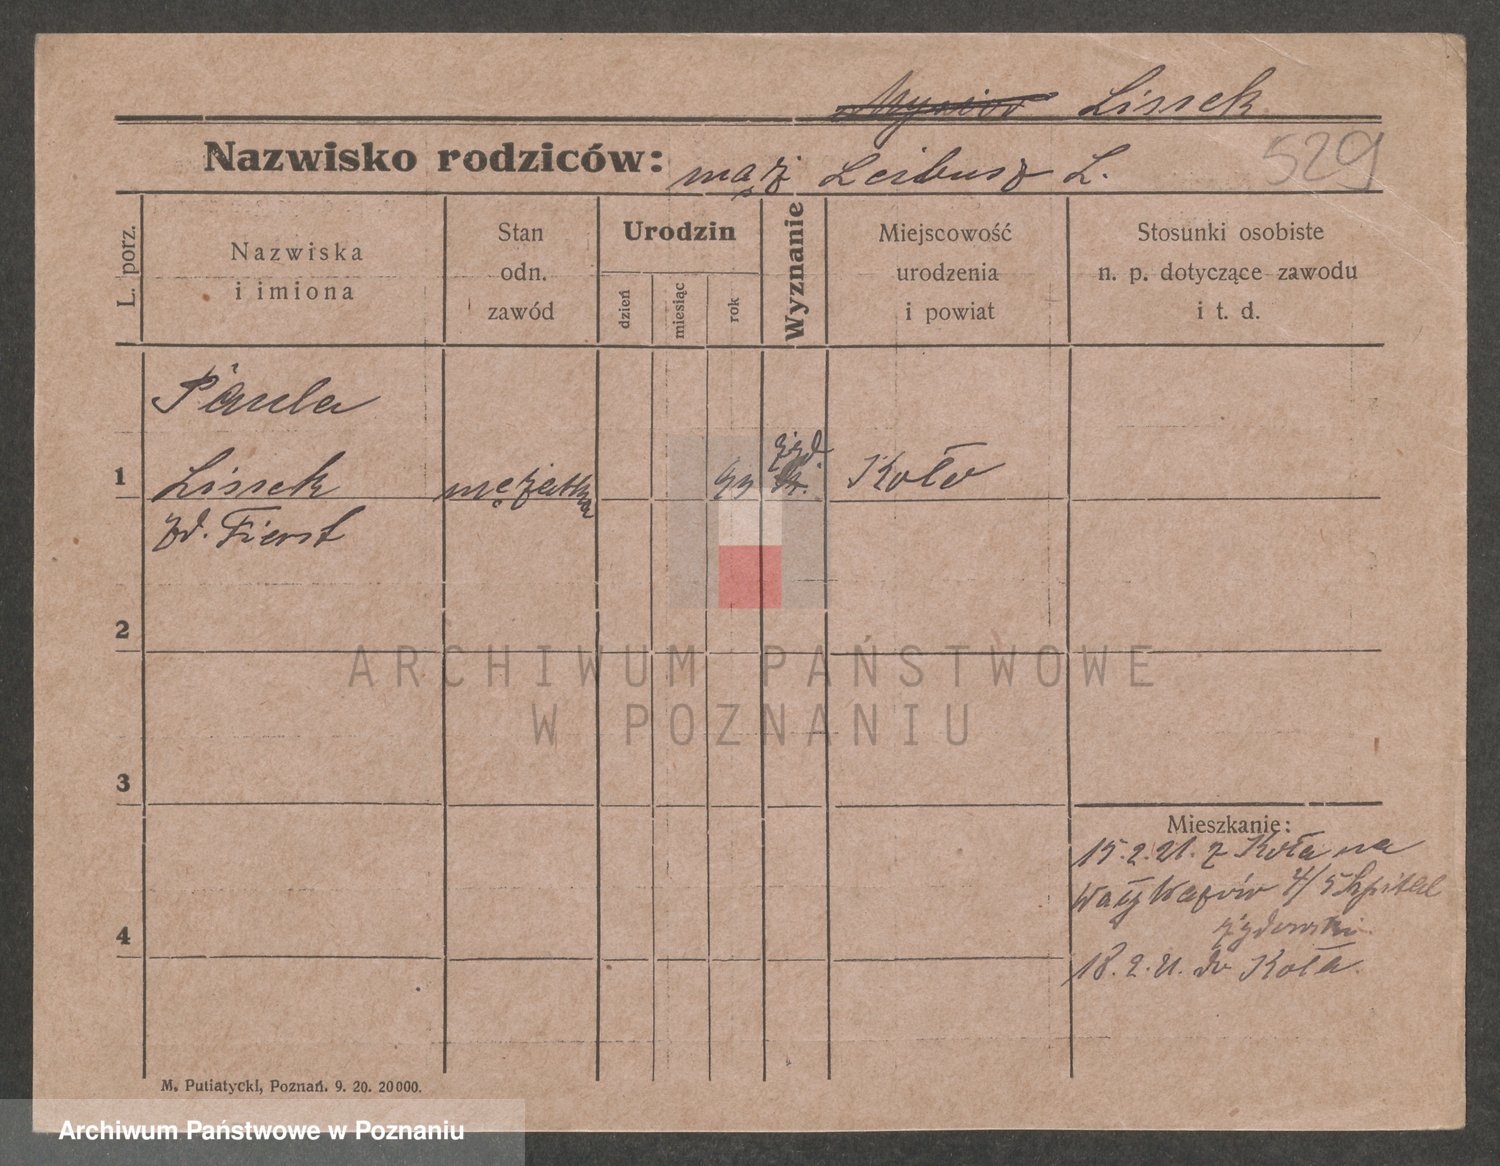 Lissek
529
Nazwisko rodziców: mąż Leibusz L.
L. porz.
Nazwiska
i imiona
Stan
odn.
zawód
Urodzin
dzień
miesiąc
rok
Wyznanie
Miejscowość
urodzenia
i powiat
Stosunki osobiste
n. p. dotyczące zawodu
i t. d.
Paula
1
Lissek
mężatka
żyd.
Koło
zd. Fierst
2
ARCHIWUM PAŃSTWOWE
W POZNANIU
3
Mieszkanie:
15.2.21. z Koła na
Wały 4/5 Szpital
żydowski.
4
18.2.21. do Koła.
M. Putiatycki, Poznań. 9. 20. 20000.
Archiwum Państwowe w Poznaniu